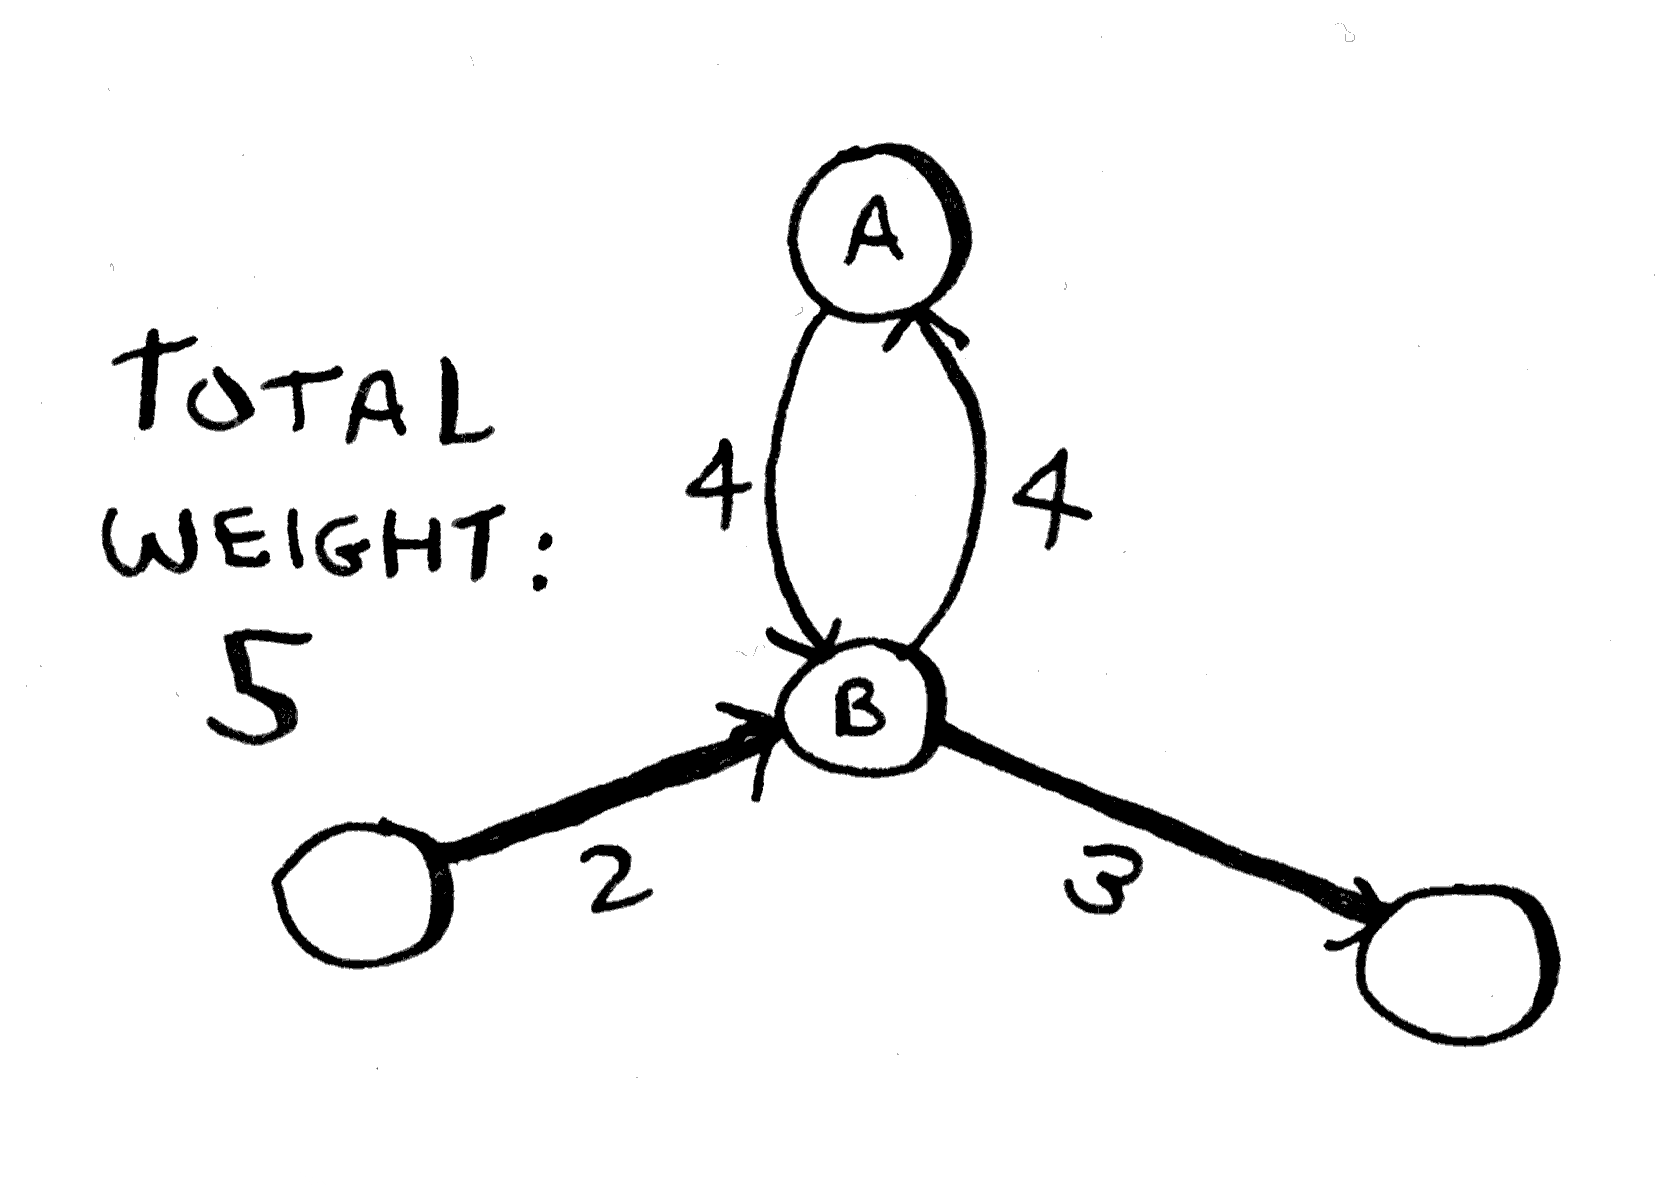 A
TOTAL
WEIGHT:
5
4
4
B
2
3